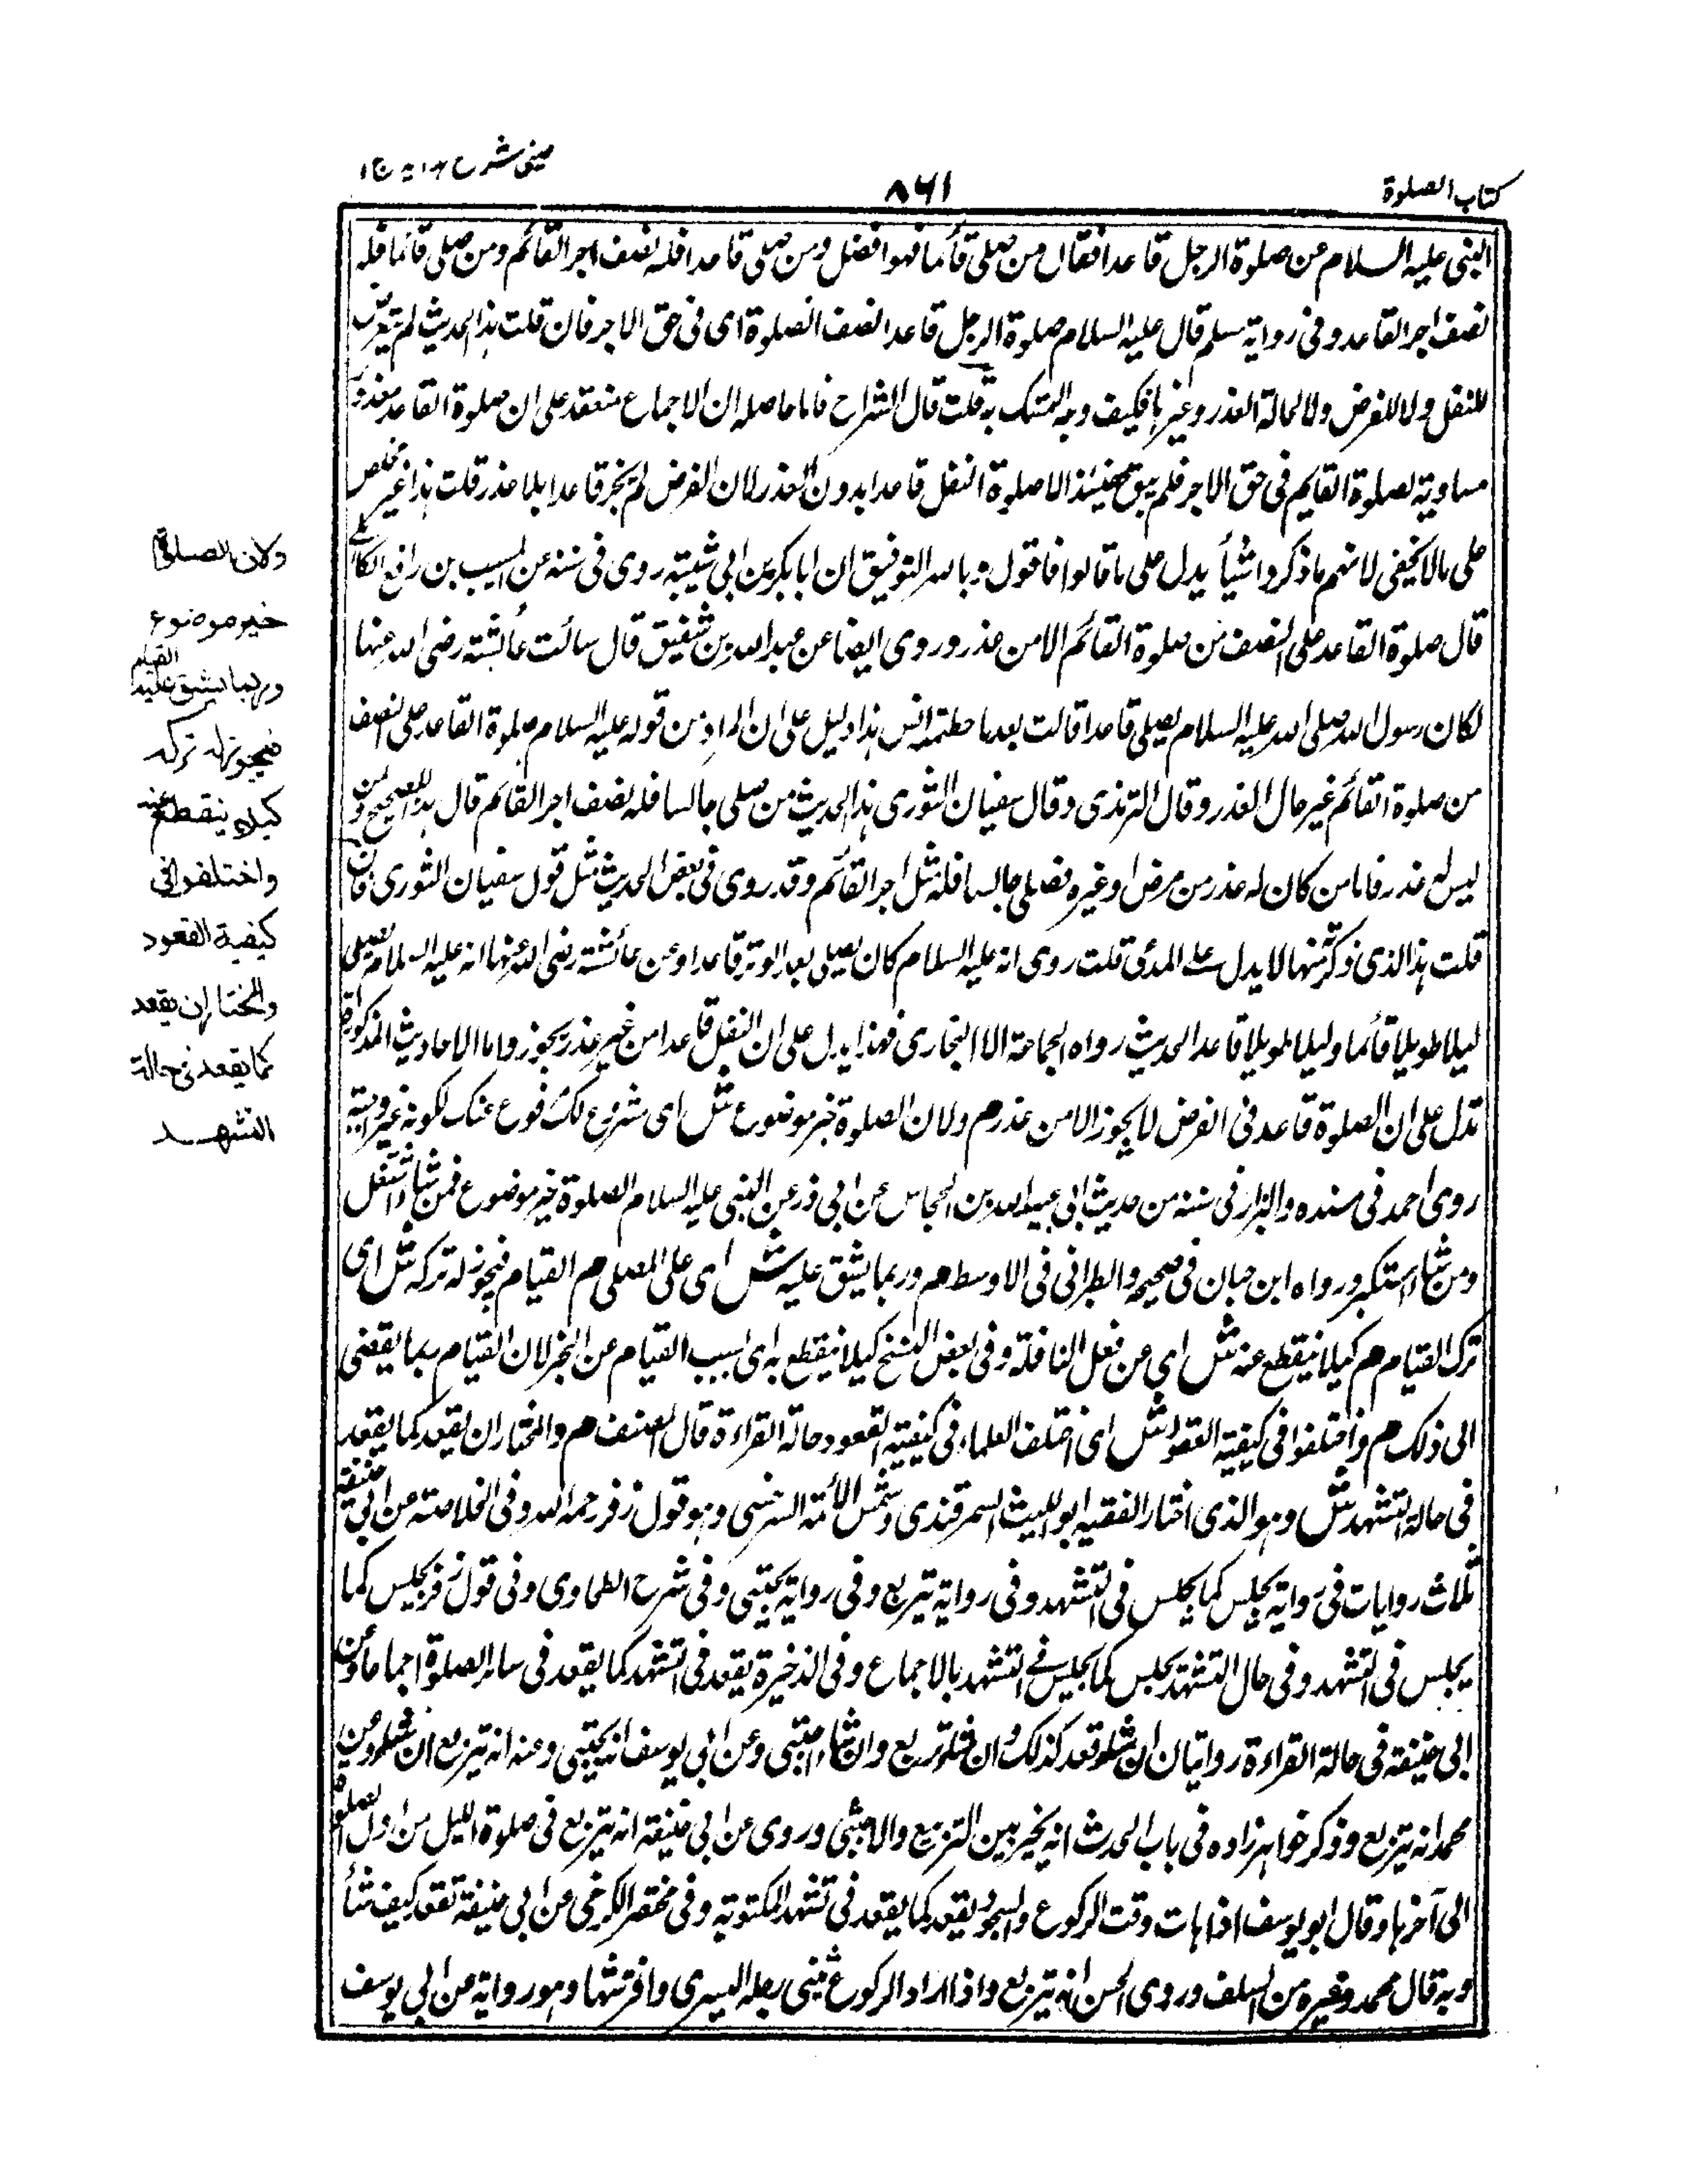 كتاب الصلوة
٨٦١
عینی شرح ہدایہ ج ١
النبي عليه السلام عن صلوة الرجل قاعدا فقال من صلى قائما فهو افضل ومن صلى قاعدا فله نصف اجر القائم ومن صلى قائما فله
نصف اجر القاعد وفي رواية مسلم قال عليه السلام صلوة الرجل قاعدا نصف الصلوة اى في حق الاجر فان قلت هذا الحديث لم يتعرض
للنفل ولا للفرض ولا لحالة العذر وغيرها فكيف وجه التمسك به قلت قال الشراح فاما حاصله ان الاجماع منعقد على ان صلوة القاعد معذورا
مساوية لصلوة القايم في حق الاجر فلم يبق حينئذ الا صلوة النفل قاعدا بدون العذر لان الفرض لم يجز قاعدا بلا عذر قلت هذا غير مخلص
على مالا يخفى لانهم ما ذكروا شيأ يدل على ما قالوا فاقول وبالله التوفيق ان ابا بكر بن ابي شيبة روى في سننه عن المسيب بن رافع الكاهلى
قال صلوة القاعد على النصف من صلوة القائم الا من عذر وروى ايضا عن عبد الله بن شقيق قال سألت عائشة رضى الله عنها
اكان رسول الله صلى الله عليه السلام يصلى قاعدا قالت بعد ما حطمه الناس هذا دليل على ان المراد من قوله عليه السلام صلوة القاعد على النصف
من صلوة القائم غير حال العذر وقال الترمذى وقال سفيان الثورى هذا الحديث من صلى جالسا فله نصف اجر القائم قال هذا للصحيح ولمن
ليس له عذر فاما من كان له عذر من مرض او غيره فصلى جالسا فله مثل اجر القائم وقد روى في بعض الحديث مثل قول سفيان الثورى فان
قلت هذا الذى ذكرته منها لا يدل على المدعى قلت روى انه عليه السلام كان يصلى بعد الوتر قاعدا وعن عائشة رضى الله عنها انه عليه السلام يصلى
ليلا طويلا قائما وليلا طويلا قاعدا الحديث رواه الجماعة الا البخارى فهذا يدل على ان النفل قاعدا من غير عذر يجوز واما الاحاديث المذكورة
تدل على ان الصلوة قاعد في الفرض لا يجوز الا من عذر م ولان الصلوة خير موضوع ش اى مشروع لك مرفوع عنك لكونه غير واجبة
روى احمد في مسنده والبزار في سننه من حديث ابي عبيد الله بن الحجاس عن ابي ذر عن النبي عليه السلام الصلوة خير موضوع فمن شاء استقل
ومن شاء استكثر ورواه ابن حبان في صحيحه والطبراني في الاوسط م وربما يشق عليه ش اى على المصلى م القيام فيجوز له تركه ش اى
ترك القيام م كيلا ينقطع عنه ش اى عن فعل النافلة وفي بعض النسخ كيلا ينقطع به اى بسبب القيام عن الخير لان القيام ربما يفضى
الى ذلك م واختلفوا في كيفية القعود ش اى اختلف العلماء في كيفية القعود حالة القراءة قال المصنف م والمختار ان يقعد كما يقعد
في حالة التشهد ش وهو الذى اختار الفقيه ابو الليث السمرقندى وشمس الأئمة السرخسى وهو قول زفر رحمه الله وفي الخلاصة عن ابي حنيفة
ثلاث روايات في رواية يجلس كما يجلس في التشهد وفي رواية يتربع وفي رواية يحتبى وفي شرح الطحاوى وفي قول زفر يجلس كما
يجلس في التشهد وفي حال التشهد يجلس كما يجلس في التشهد بالاجماع وفي الذخيرة يقعد في التشهد كما يقعد في سائر الصلوة اجماعا وعن
ابي حنيفة في حالة القراءة روايتان ان شاء قعد كذلك وان شاء تربع وان شاء احتبى وعن ابي يوسف انه يحتبى وعنه انه يتربع ان شاء وعن
محمد انه يتربع وذكر خواهر زاده في باب الحدث انه يخير بين التربع والاحتبى وروى عن ابي حنيفة انه يتربع في صلوة الليل من اول الصلوة
الى آخرها وقال ابو يوسف اذا هات وقت الركوع والسجود يقعد كما يقعد في تشهد المكتوبة وفي مختصر الكرخى عن ابي حنيفة تقعد كيف شأ
وبه قال محمد وغيره من السلف وروى الحسن انه يتربع واذا اراد الركوع يثنى رجله اليسرى وافترشها وهو رواية عن ابي يوسف
ولان الصلوة
خير موضوع
وربما يشق عليه القيام
فيجوز له تركه
كيلا ينقطع عنه
واختلفوا في
كيفية القعود
والمختار ان يقعد
كما يقعد في حالة
التشهد